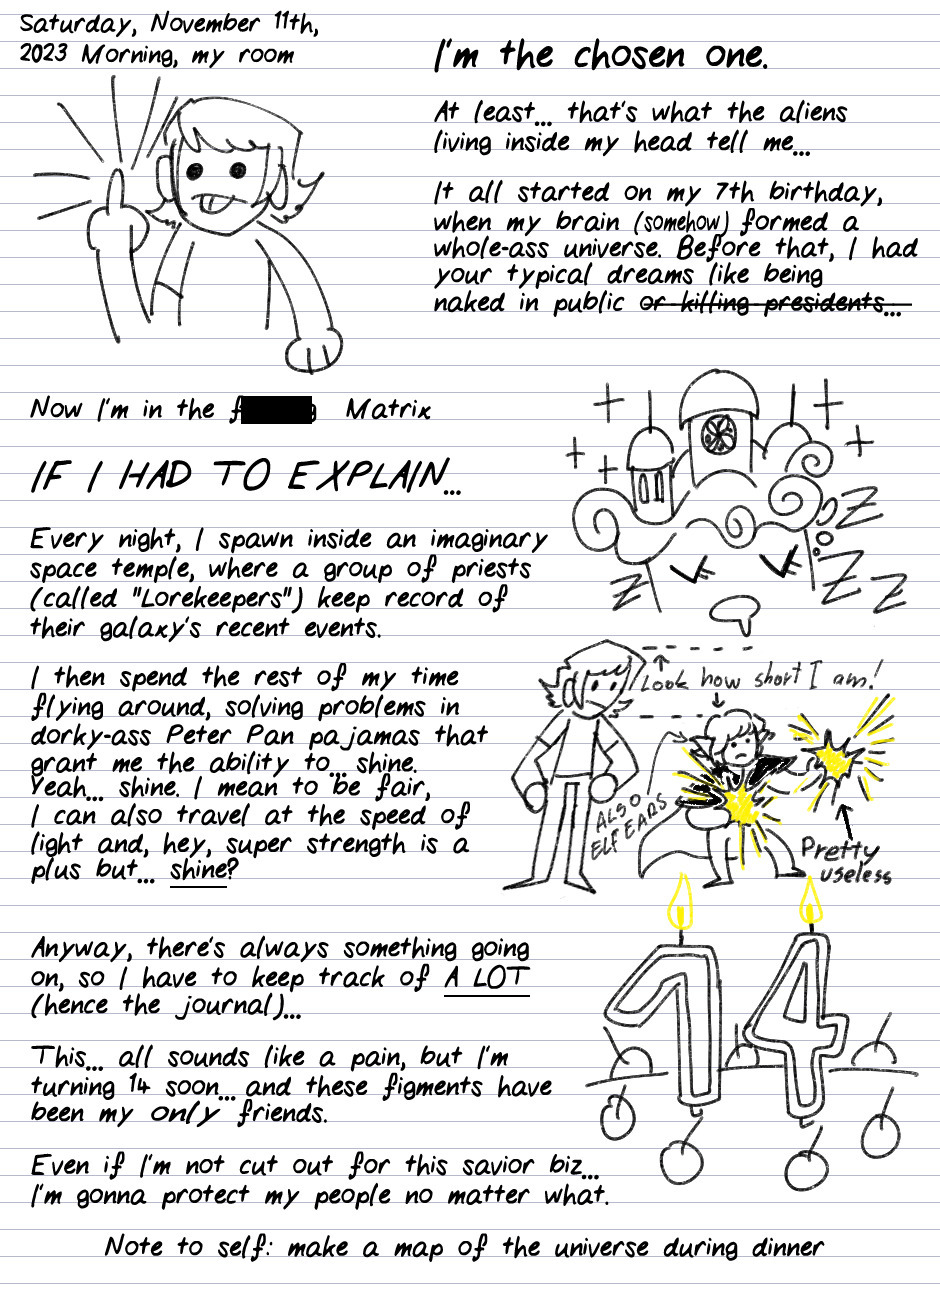 Saturday, November 11th,
2023 Morning, my room
I'm the chosen one.
At least... that's what the aliens
living inside my head tell me...
It all started on my 7th birthday,
when my brain (somehow) formed a
whole-ass universe. Before that, I had
your typical dreams like being
naked in public or killing presidents...
Now I'm in the Matrix
IF I HAD TO EXPLAIN...
Every night, I spawn inside an imaginary
space temple, where a group of priests
(called "Lorekeepers") keep record of
their galaxy's recent events.
Z
Z
Z
Z
I then spend the rest of my time
flying around, solving problems in
dorky-ass Peter Pan pajamas that
grant me the ability to... shine.
Yeah... shine. I mean to be fair,
I can also travel at the speed of
light and, hey, super strength is a
plus but... shine?
Look how short I am!
ALSO
ELF EARS
Pretty
useless
Anyway, there's always something going
on, so I have to keep track of A LOT
(hence the journal)...
14
This... all sounds like a pain, but I'm
turning 14 soon... and these figments have
been my only friends.
Even if I'm not cut out for this savior biz...
I'm gonna protect my people no matter what.
Note to self: make a map of the universe during dinner